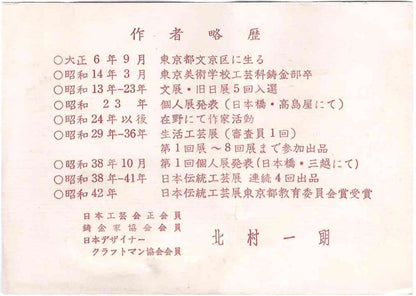 作者略歴
○大正6年9月 東京都文京区に生る
○昭和14年3月 東京美術学校工芸科鋳金部卒
○昭和13年-23年 文展・旧日展5回入選
○昭和 23年 個人展発表(日本橋・高島屋にて)
○昭和24年以後 在野にて作家活動
○昭和29年-36年 生活工芸展(審査員1回)
第1回展〜8回展まで参加出品
○昭和38年10月 第1回個人展発表(日本橋・三越にて)
○昭和38年-41年 日本伝統工芸展 連続4回出品
○昭和42年 日本伝統工芸展東京都教育委員会賞受賞
日本工芸会正会員
鋳金家協会会員
日本デザイナー
クラフトマン協会会員
北村一朗